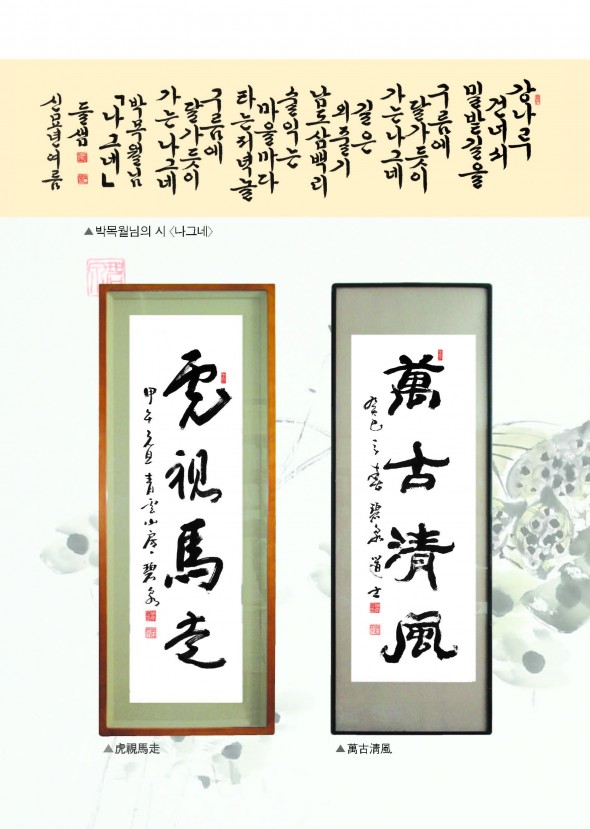 강나루
건너서
밀밭길을
구름에
달가듯이
가는나그네
길은
외줄기
남도삼백리
술익는
마을마다
타는저녁놀
구름에
달가듯이
가는나그네
박목월님
「나그네」
들샘
신묘년여름
▲박목월님의 시 〈나그네〉
虎視馬走
甲午元旦 青雲山房 碧泉
▲虎視馬走
萬古清風
癸巳之春 碧泉道士
▲萬古清風